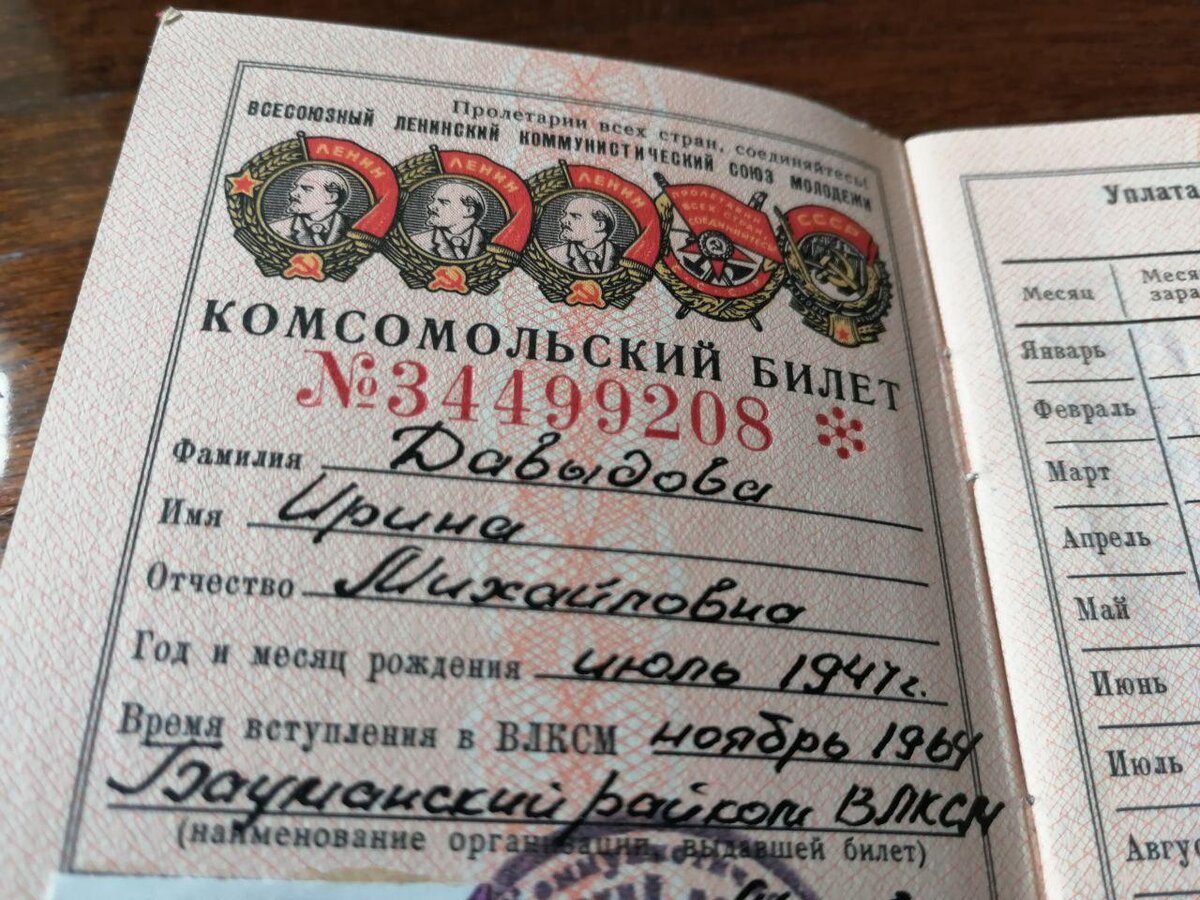 Пролетарии всех стран, соединяйтесь!
ВСЕСОЮЗНЫЙ ЛЕНИНСКИЙ КОММУНИСТИЧЕСКИЙ СОЮЗ МОЛОДЕЖИ
ЛЕНИН ЛЕНИН ЛЕНИН ПРОЛЕТАРИИ ВСЕХ СТРАН СОЕДИНЯЙТЕСЬ СССР
КОМСОМОЛЬСКИЙ БИЛЕТ
№34499208
Фамилия Давыдова
Имя Ирина
Отчество Михайловна
Год и месяц рождения июль 1947г.
Время вступления в ВЛКСМ ноябрь 1964
Бауманский райком ВЛКСМ
(наименование организации, выдавшей билет)
Уплата
Месяц
Январь
Февраль
Март
Апрель
Май
Июнь
Июль